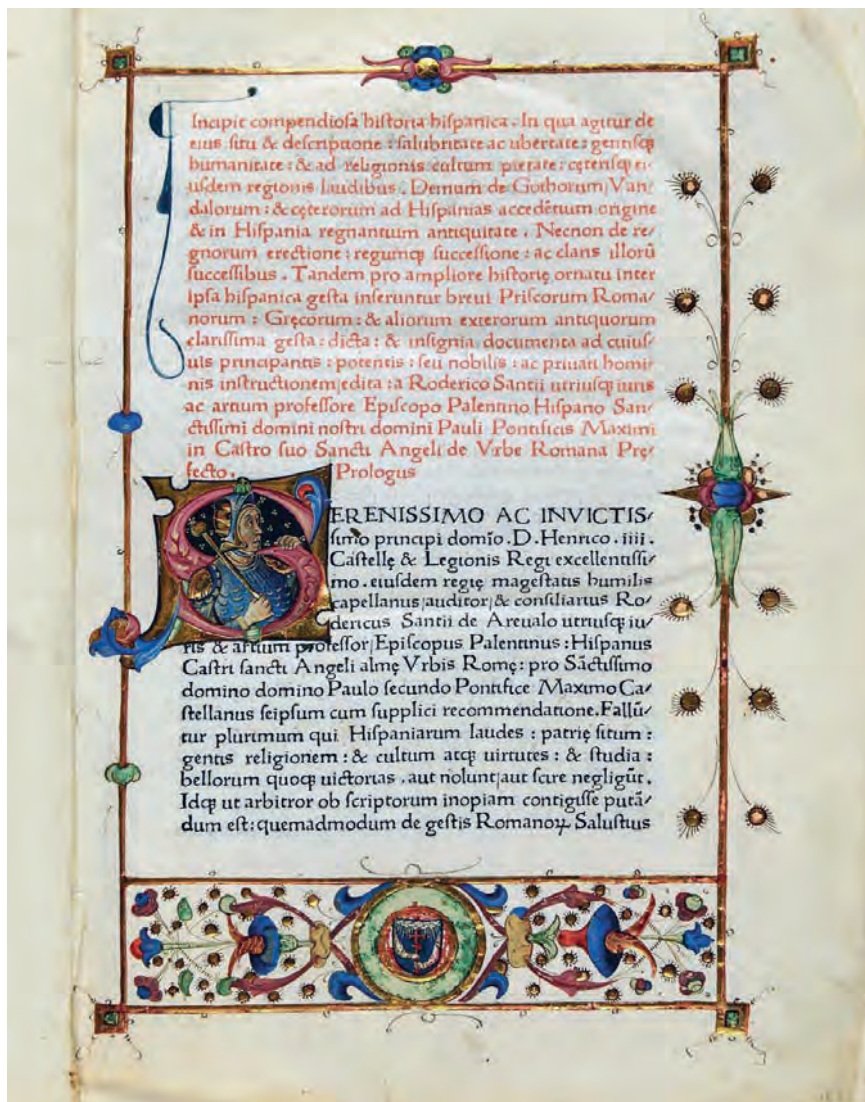 Incipit compendiosa historia hispanica. In qua agitur de
eius situ & descriptione : salubritate ac ubertate : gentisq̄
humanitate : & ad religionis cultum pietate : cęterisq̄ ei⸗
usdem regionis laudibus. Demum de Gothorum| Van⸗
dalorum : & cęterorum ad Hispanias accedētium origine
& in Hispania regnantium antiquitate. Necnon de re⸗
gnorum erectione : regumq̄ successione : ac claris illorū
successibus. Tandem pro ampliore historię ornatu inter
ipsa hispanica gesta inseruntur breui Priscorum Roma⸗
norum : Gręcorum : & aliorum exterorum antiquorum
clarissima gesta : dicta : & insignia documenta ad cuius⸗
uis principantis : potentis : seu nobilis : ac priuati homi⸗
nis instructionem| edita : a Roderico Santii utriusq̄ iuris
ac artium professore Episcopo Palentino Hispano San⸗
ctissimi domini nostri domini Pauli Pontificis Maximi
in Castro suo Sancti Angeli de Vrbe Romana Prę⸗
fecto. Prologus
SERENISSIMO AC INVICTIS⸗
simo principi domīo. D. Henrico. iiii.
Castellę & Legionis Regi excellentissi⸗
mo. eiusdem regię magestatis humilis
capellanus| auditor| & consiliarius Ro⸗
dericus Santii de Areualo utriusq̄ iu⸗
ris & artium professor| Episcopus Palentinus : Hispanus
Castri sancti Angeli almę Vrbis Romę : pro Sāctissimo
domino domino Paulo secundo Pontifice Maximo Ca⸗
stellanus seipsum cum supplici recommendatione. Fallū⸗
tur plurimum qui Hispaniarum laudes : patrię situm :
gentis religionem : & cultum atq̄ uirtutes : & studia :
bellorum quoq̄ uictorias. aut nolunt| aut scire negligūt.
Idq̄ ut arbitror ob scriptorum inopiam contigisse putā⸗
dum est : quemadmodum de gestis Romanoꝝ Salustius